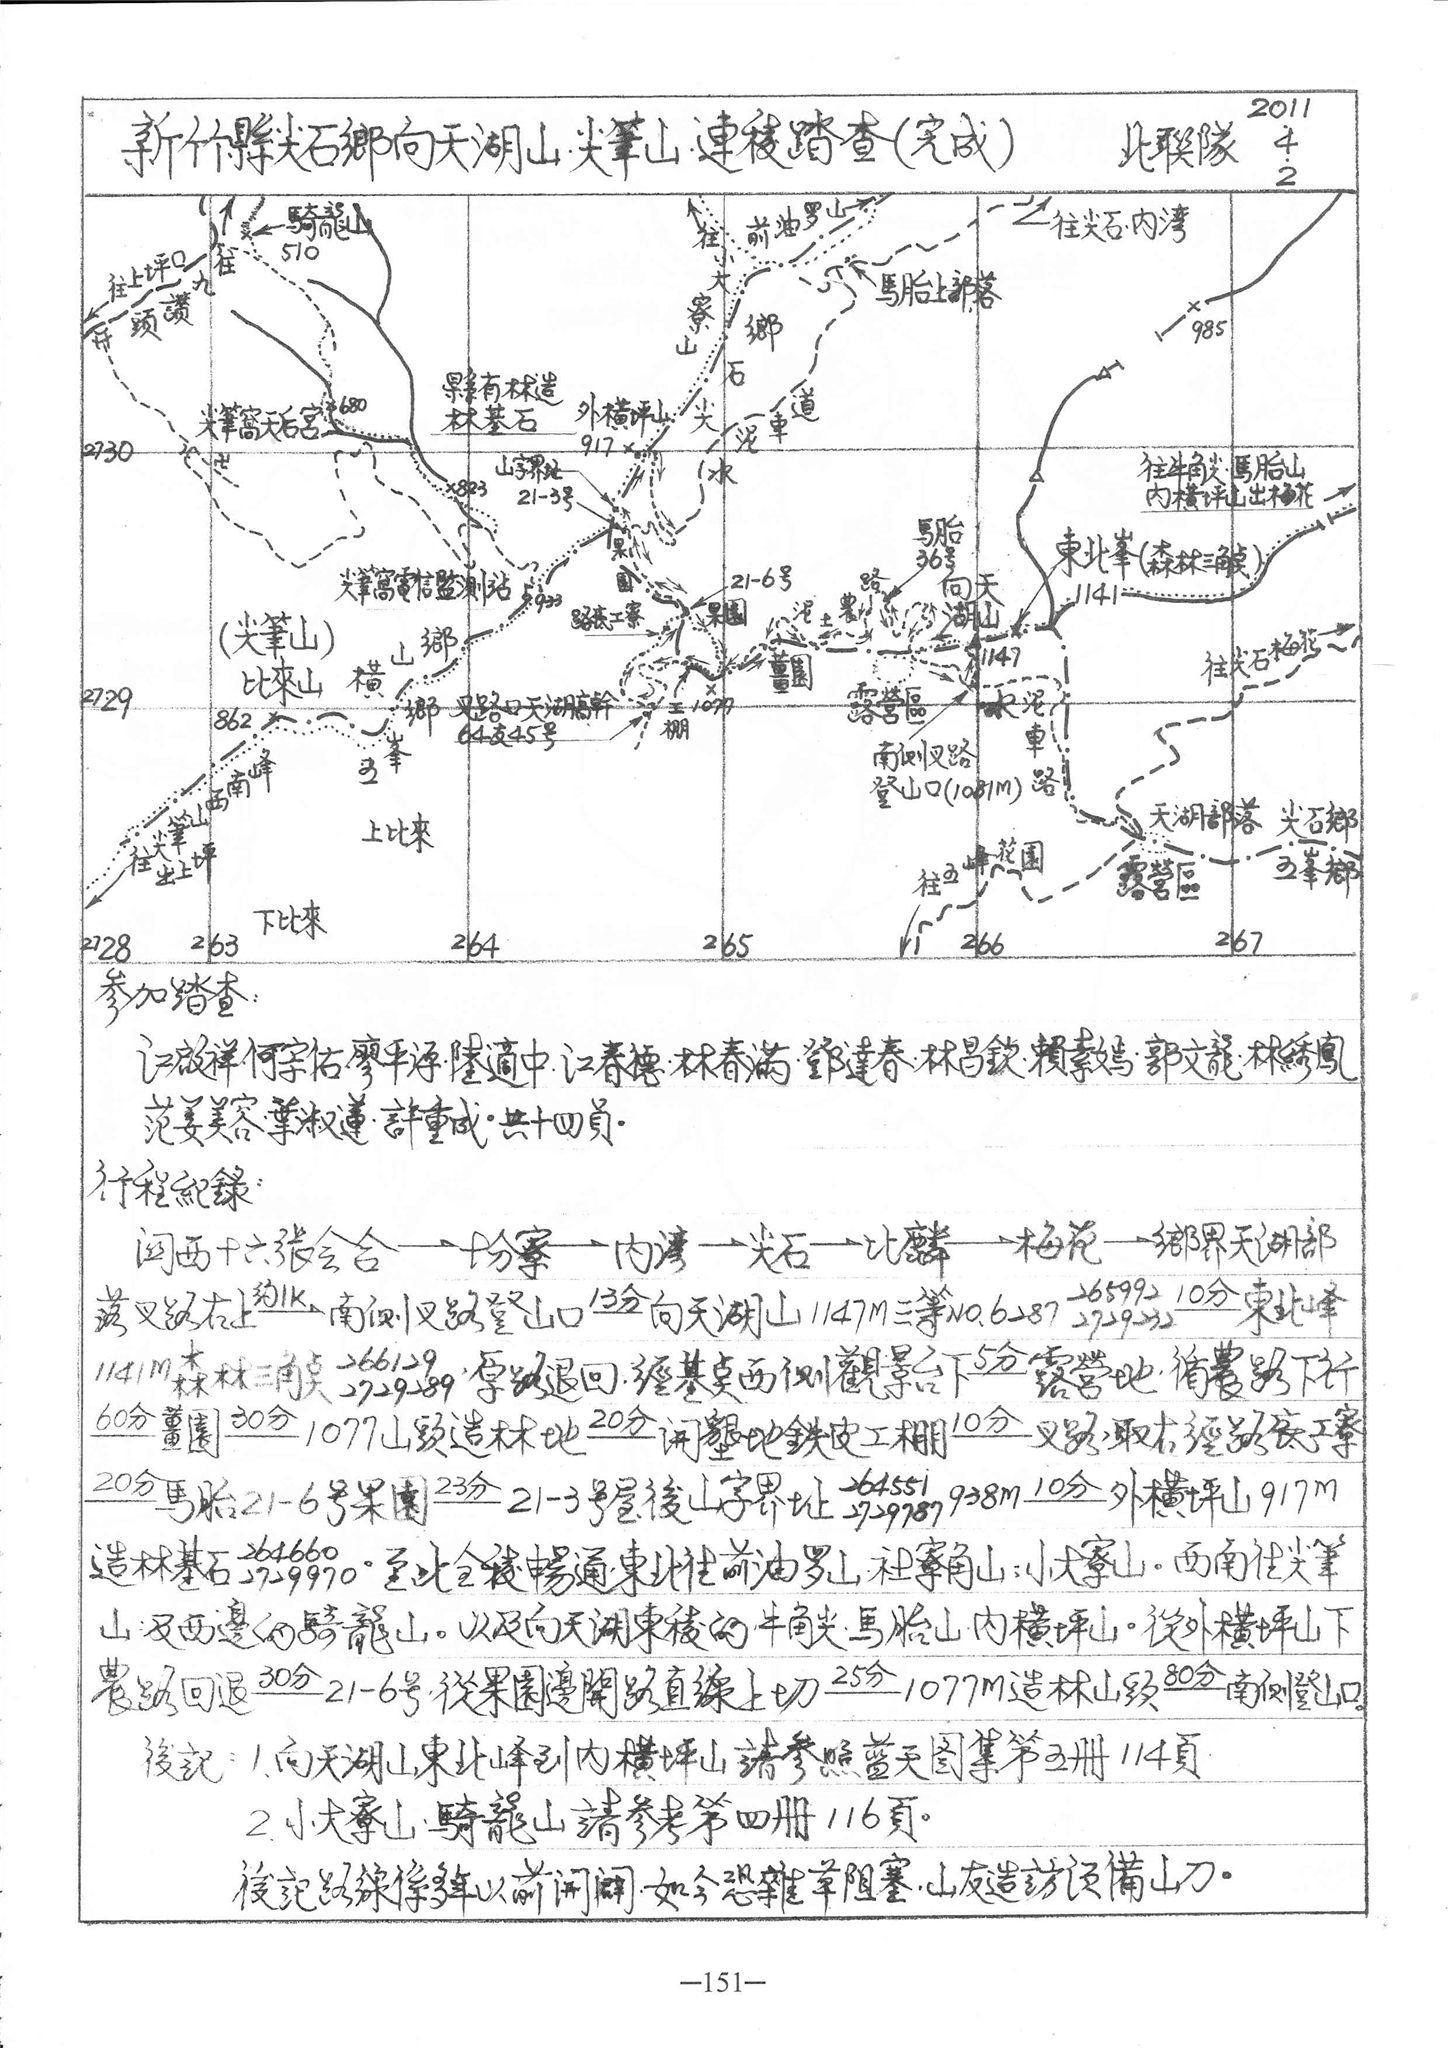 新竹縣尖石鄉向天湖山·尖筆山·連稜踏查(完成)
北聯隊
2011
4.
2
騎龍山
510
往
往上坪
九
讚
頭
往
大
寮
山
前油罗山
往尖石·内湾
馬胎上部落
鄉
石
尖
985
680
尖筆窩天后宮
縣有林造
林基石
外橫坪山
917
道
車
泥
水
2730
山字界址
21-3号
823
往牛角尖·馬胎山
内橫坪山出梅花
馬胎
36号
東北峯(森林三角点)
1141
果
園
尖筆窩電信監測站
933
21-6号
果園
路底工寮
路
農
土
泥
向天
湖山
1147
(尖筆山)
比來山
橫
山
鄉
薑園
往尖石梅花
2729
862
鄉
峯
五
叉路口天湖高幹
64支45号
工
棚
1077
露營區
水泥
車
路
南側叉路
登山口(1081M)
往尖筆山西南峰
出上坪
上比來
天湖部落
尖石鄉
五峯鄉
露營區
往五峰花園
下比來
2728
263
264
265
266
267
参加踏查:
江啟祥·何宗佑·廖平源·陸適中·江春德·林春滿·鄧達春·林昌欽·賴素嫣·郭文龍·林綉鳳
范姜美容·葉淑蓮·許重成·共十四員。
行程紀錄:
関西十六張会合→十分寮→内湾→尖石→比麟→梅花→鄉界天湖部
落叉路右上 約1K 南側叉路登山口 13分 向天湖山1147M三等NO.6287 265992 2729232 10分 東北峰
1141M森林三角点 266129 2729289·原路退回·經基点西側觀景台下 5分 露營地·循農路下行
60分 薑園 30分 1077山頭造林地 20分 開墾地鉄皮工棚 10分 叉路·取右經路底工寮
20分 馬胎21-6号果園 23分 21-3号屋後山字界址 264551 2729787 938M 10分 外橫坪山917M
造林基石 264660 2729970。至此全稜暢通·東北往前油罗山·社寮角山·小大寮山。西南往尖筆
山·及西邊的騎龍山。以及向天湖東稜的·牛角尖·馬胎山·内橫坪山。從外橫坪山下
農路回退 30分 21-6号·從果園邊開路直線上切 25分 1077M造林山頭 80分 南側登山口。
後記:1.向天湖山東北峰到内橫坪山請參照藍天图集第五冊114頁
2.小大寮山·騎龍山請參考第四冊116頁。
後記路線係多年以前開闢·如今恐雜草阻塞·山友造訪須備山刀。
—151—